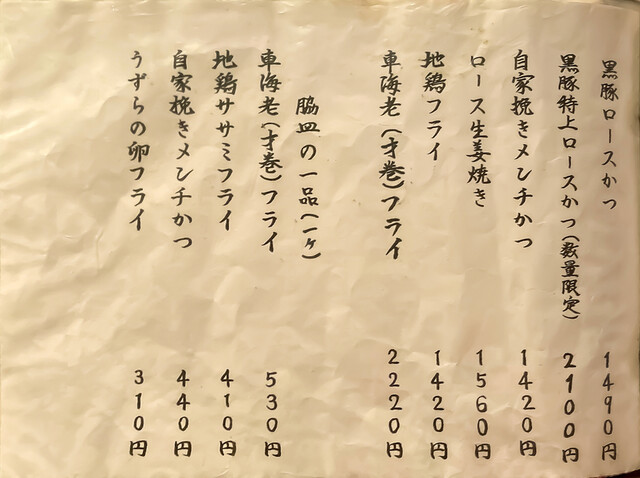 黒豚ロースかつ 1490円
黒豚特上ロースかつ(数量限定) 2100円
自家挽きメンチかつ 1420円
ロース生姜焼き 1560円
地鶏フライ 1420円
車海老(才巻)フライ 2220円
脇皿の一品(一ヶ)
車海老(才巻)フライ 530円
地鶏ササミフライ 410円
自家挽きメンチかつ 440円
うずらの卵フライ 310円